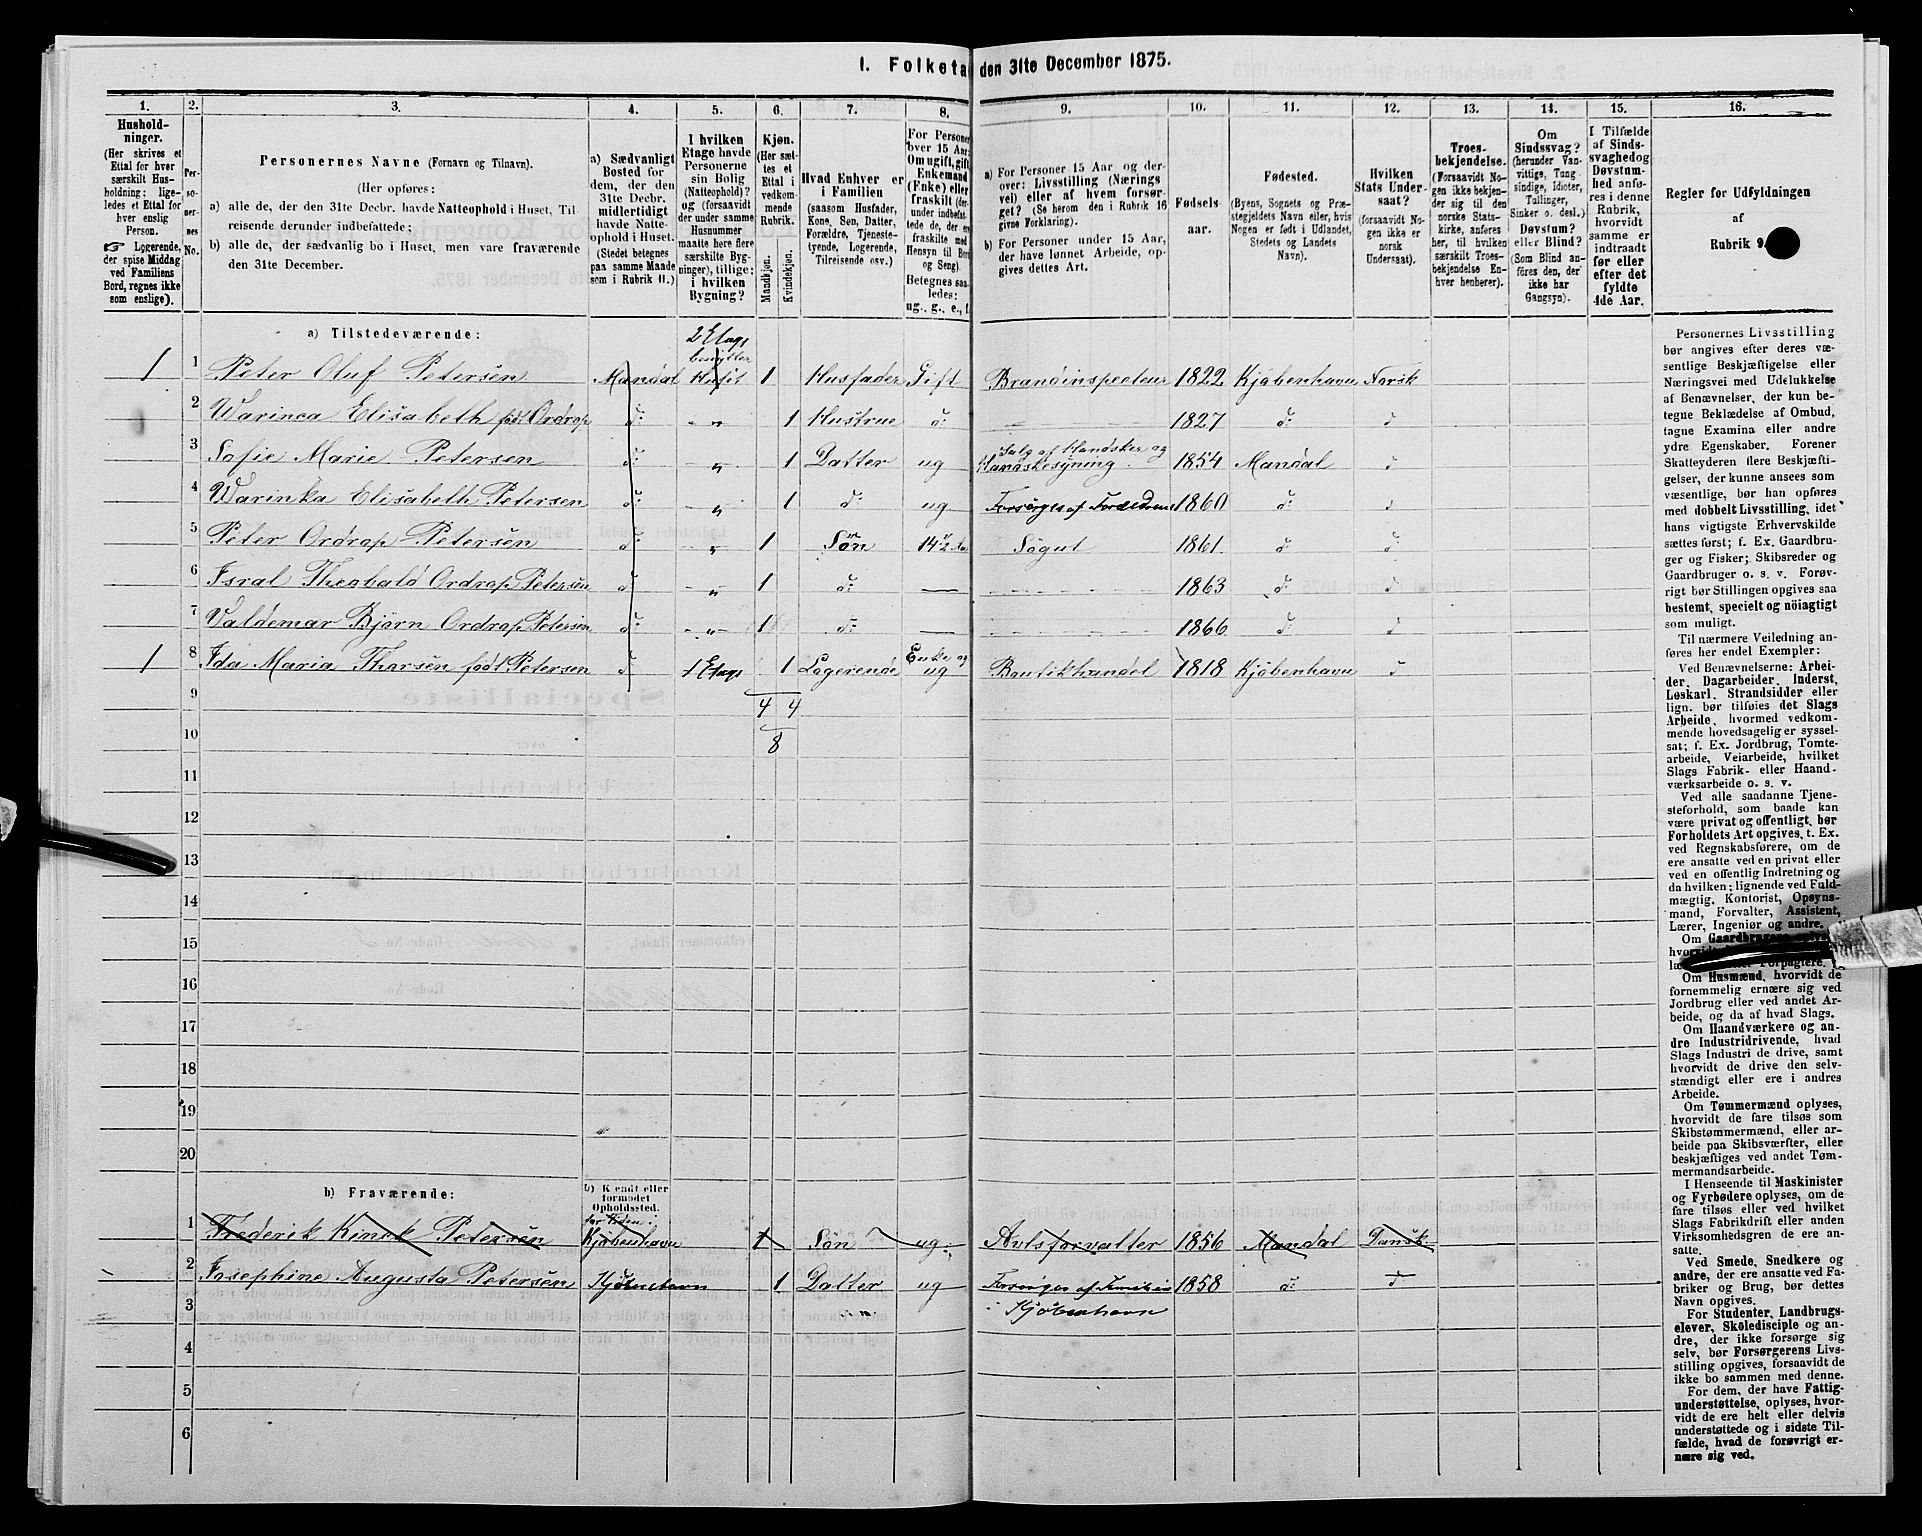 1. Folketa den 31te December 1875.
1. 2. 3. 4. 5. 6. 7. 8. 9. 10. 11. 12. 13. 14. 15. 16.
Hushold-
ninger.
(Her skrives et
Ettal for hver
særskilt Hus-
holdning; lige-
ledes et Ettal for
hver enslig
Person.
☞ Logerende,
der spise Middag
ved Familiens
Bord, regnes ikke
som enslige).
Per-
so-
ner-
nes
No.
Personernes Navne (Fornavn og Tilnavn).
(Her opføres:
a) alle de, der den 31te Decbr. havde Natteophold i Huset, Til-
reisende derunder indbefattede;
b) alle de, der sædvanlig bo i Huset, men vare fraværende
den 31te December.
a) Sædvanligt
Bosted for
dem, der den
31te Decbr.
midlertidigt
havde Natte-
ophold i Huset.
(Stedet betegnes
paa samme Maade
som i Rubrik 11.)
I hvilken
Etage havde
Personerne
sin Bolig
(Natteophold)?
og (forsaavidt
der under samme
Husnummer
maatte høre flere
særskilte Byg-
ninger), tillige:
i hvilken
Bygning?
Kjøn.
(Her sæt-
tes et
Ettal i
vedkom-
mende
Rubrik.
Mandkjøn.
Kvindekjøn.
Hvad Enhver er
i Familien
(saasom Husfader,
Kone, Søn, Datter,
Forældre, Tjeneste-
tyende, Logerende,
Tilreisende osv.)
For Personer
over 15 Aar:
Om ugift, gift,
Enkemand
(Enke) eller
fraskilt (der-
under indbefat-
tede de, der ere
fraskilte med
Hensyn til Bord
og Seng).
Betegnes saa-
ledes:
ug., g., e., f.
a) For Personer 15 Aar og der-
over: Livsstilling (Nærings
vei) eller af hvem forsør-
get? (Se herom den i Rubrik 16
givne Forklaring).
b) For Personer under 15 Aar,
der have lønnet Arbeide, op-
gives dettes Art.
Fødsels-
aar.
Fødested.
(Byens, Sognets og Præ-
stegjeldets Navn eller, hvis
Nogen er født i Udlandet,
Stedets og Landets
Navn).
Hvilken
Stats Under-
saat?
(forsaavidt No-
gen ikke er
norsk
Undersaat).
Troes-
bekjendelse.
(Forsaavidt No-
gen ikke bekjen-
der sig til den
norske Stats-
kirke, anføres
her, til hvilken
særskilt Troes-
bekjendelse En-
hver henhører).
Om
Sindssvag?
(herunder Van-
vittige, Tung
sindige, Idioter,
Tullinger,
Sinker o. desl.)
Døvstum?
eller Blind?
(Som Blind an-
føres den, der
ikke har
Gangsyn).
I Tilfælde
af Sinds-
svaghed og
Døvstum-
hed anfø-
res i denne
Rubrik,
hvorvidt
samme er
indtraadt
før eller
efter det
fyldte
4de Aar.
Regler for Udfyldningen
af
Rubrik 9.
a) Tilstedeværende:
2 Etage
benytter
1 1 Peter Oluf Petersen Mandal Huset 1 Husfader Gift Brandinspecteur 1822 Kjøbenhavn Norsk
2 Warinca Elisabeth født Ordrop d: - „ 1 Hustrue d: 1827 d: d
Salg af Handsker og
3 Sofie Marie Petersen d: „ 1 Datter ug Handskesyning. 1854 Mandal d
4 Warinka Elisabeth Petersen d: „ 1 d: ug Forsørges af Forældrene 1860 d: d
5 Peter Ordrop Petersen d: „ 1 Søn 14 1/2 Aar Søgut 1861. d: d
6 Isral Theobald Ordrop Petersen d: „ 1 d: — 1863 d: d
7 Valdemar Bjørn Ordrop Petersen d: „ 1 d: — 1866 d: d
1 8 Ida Maria Tharsen født Petersen d 1 Etage 1 Logerende Enke og ug Boutikhandel 1818 Kjøbenhavn d
9 4 4
10 8
11
12
13
14
15
16
17
18
19
20
b) Fraværende:
b) Kjendt eller
formodet
Opholdssted.
for tiden:
1 Frederik Petersen Kjøbenhavn 1 Søn ug: Avlsforvalter 1856 Mandal Dansk
2 Josephine Augusta Petersen Kjøbenhavn 1 Datter ug Forsørges af Familie 1858 d: d
3 i Kjøbenhavn
4
5
6
Personernes Livsstilling
bør angives efter deres væ-
sentlige Beskjæftigelse eller
Næringsvei med Udelukkelse
af Benævnelser, der kun be-
tegne Beklædelse af Ombud,
tagne Examina eller andre
ydre Egenskaber. Forener
Skatteyderen flere Beskjæfti-
gelser, der kunne ansees som
væsentlige, bør han opføres
med dobbelt Livsstilling, idet
hans vigtigste Erhvervskilde
sættes først; f. Ex. Gaardbru-
ger og Fisker; Skibsreder og
Gaardbruger o. s. v. Forøv-
rigt bør Stillingen opgives saa
bestemt, specielt og nöiagtigt
som muligt.
Til nærmere Veiledning an-
føres her endel Exempler:
Ved Benævnelserne: Arbei-
der, Dagarbeider, Inderst,
Løskarl, Strandsidder eller
lign. bør tilføies det Slags
Arbeide, hvormed vedkom-
mende hovedsagelig er syssel-
sat; f. Ex. Jordbrug, Tomte-
arbeide, Veiarbeide, hvilket
Slags Fabrik- eller Haand-
værksarbeide o. s. v.
Ved alle saadanne Tjene-
steforhold, som baade kan
være privat og offentligt, bør
Forholdets Art opgives, t. Ex.
ved Regnskabsførere, om de
ere ansatte ved en privat eller
ved en offentlig Indretning og
da hvilken; lignende ved Fuld-
mægtig, Kontorist, Opsyns-
mand, Forvalter, Assistent,
Lærer, Ingeniør og andre.
Om Gaardbrugere oplyse
hvorvidt
Forpagtere.
Om Husmænd, hvorvidt de
fornemmelig ernære sig ved
Jordbrug eller ved andet Ar-
beide, og da af hvad Slags.
Om Haandværkere og an-
dre Industridrivende, hvad
Slags Industri de drive, samt
hvorvidt de drive den selv-
stændigt eller ere i andres
Arbeide.
Om Tømmermænd oplyses,
hvorvidt de fare tilsøs som
Skibstømmermænd, eller ar-
beide paa Skibsværfter, eller
beskjæftiges ved andet Tøm-
mermandsarbeide.
I Henseende til Maskinister
og Fyrbødere oplyses, om de
fare tilsøs eller ved hvilket
Slags Fabrikdrift eller anden
Virksomhedsgren de ere an-
satte.
Ved Smede, Snedkere og
andre, der ere ansatte ved Fa-
briker og Brug, bør dettes
Navn opgives.
For Studenter, Landbrugs-
elever, Skoledisciple og an-
dre, der ikke forsørge sig
selv, bør Forsørgerens Livs-
stilling opgives, forsaavidt de
ikke bo sammen med denne.
For dem, der have Fattig-
understøttelse, oplyses, hvor-
vidt de ere helt eller delvis
understøttede og i sidste Til-
fælde, hvad de forøvrigt er-
nære sig ved.